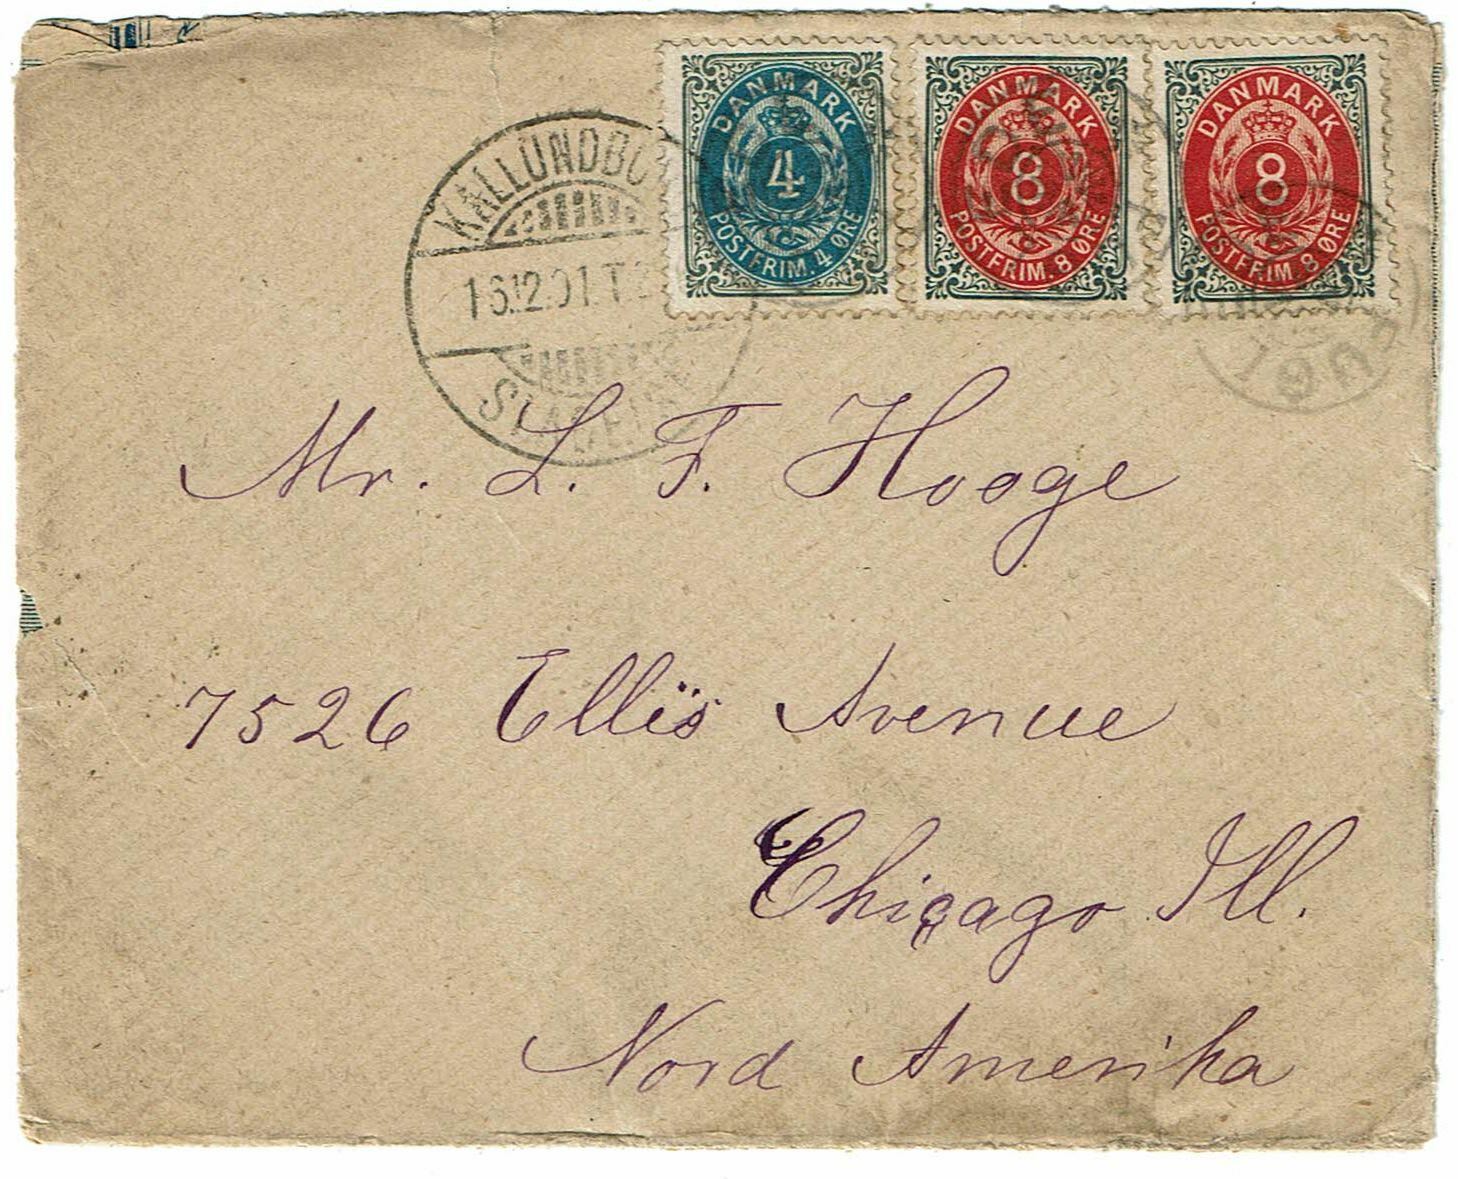 DANMARK
4
POSTFRIM. 4 ØRE
DANMARK
8
POSTFRIM. 8 ØRE
DANMARK
8
POSTFRIM. 8 ØRE
16.12.01. T
Mr. L. F. Hooge
7526 Ellis Avenue
Chicago Ill.
Nord Amerika